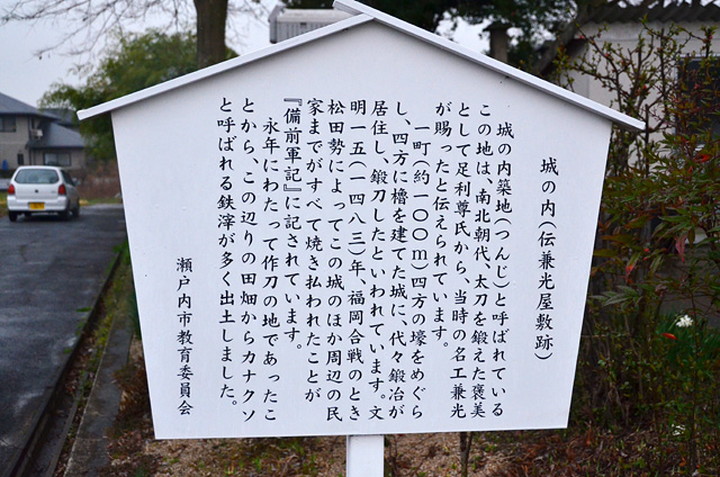 城の内(伝兼光屋敷跡)
城の内築地(つんじ)と呼ばれている
この地は、南北朝代、太刀を鍛えた褒美
として足利尊氏から、当時の名工兼光
が賜ったと伝えられています。
一町(約一〇〇m)四方の壕をめぐら
し、四方に櫓を建てた城に、代々鍛冶が
居住し、鍛刀したといわれています。文
明一五(一四八三)年、福岡合戦のとき
松田勢によってこの城のほか周辺の民
家までがすべて焼き払われたことが
『備前軍記』に記されています。
永年にわたって作刀の地であったこ
とから、この辺りの田畑からカナクソ
と呼ばれる鉄滓が多く出土しました。
瀬戸内市教育委員会